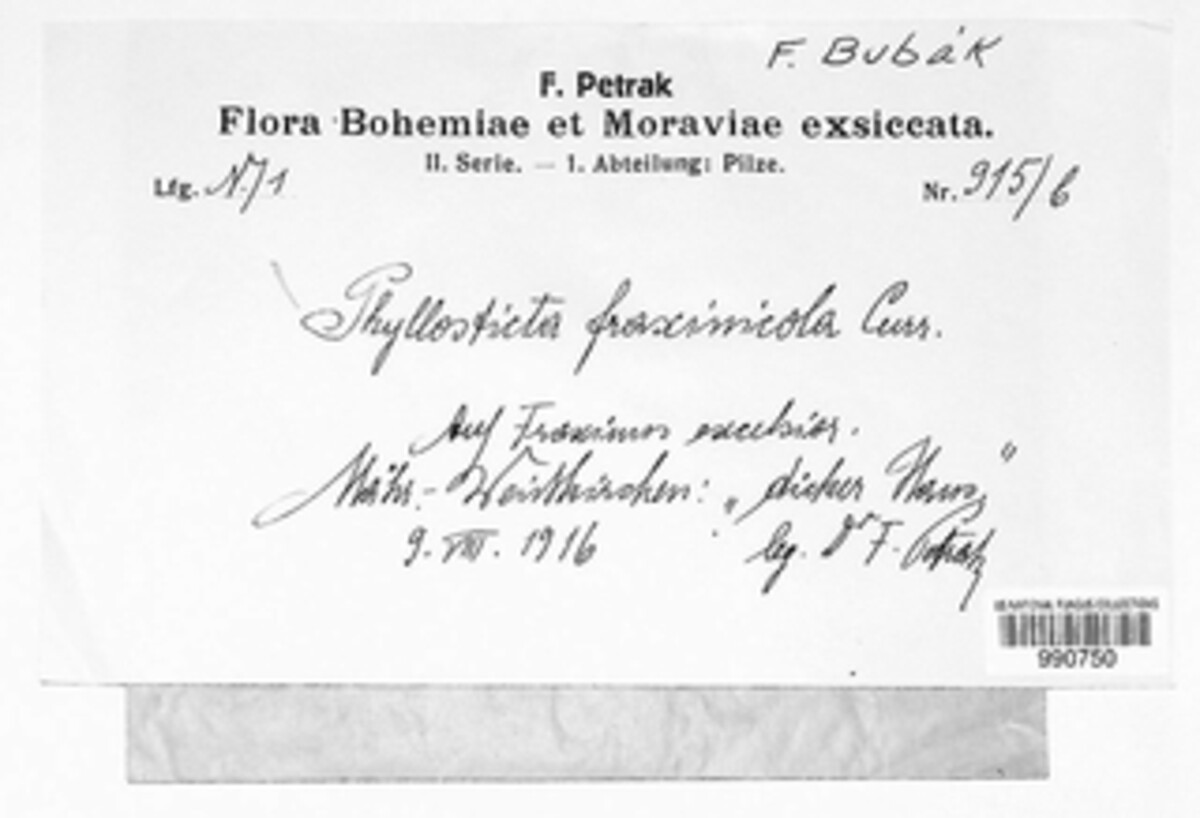 F. Bubák
F. Petrak
Flora Bohemiae et Moraviae exsiccata.
II. Serie. — I. Abteilung: Pilze.
Lfg. N/1
Nr. 915/b
Phyllosticta fraxinicola Curr.
Auf Fraxinus excelsior.
Mähr.-Weisskirchen: „dicker
9. VIII. 1916 leg. Dr F. Petrak
US NATIONAL FUNGUS COLLECTIONS
990750